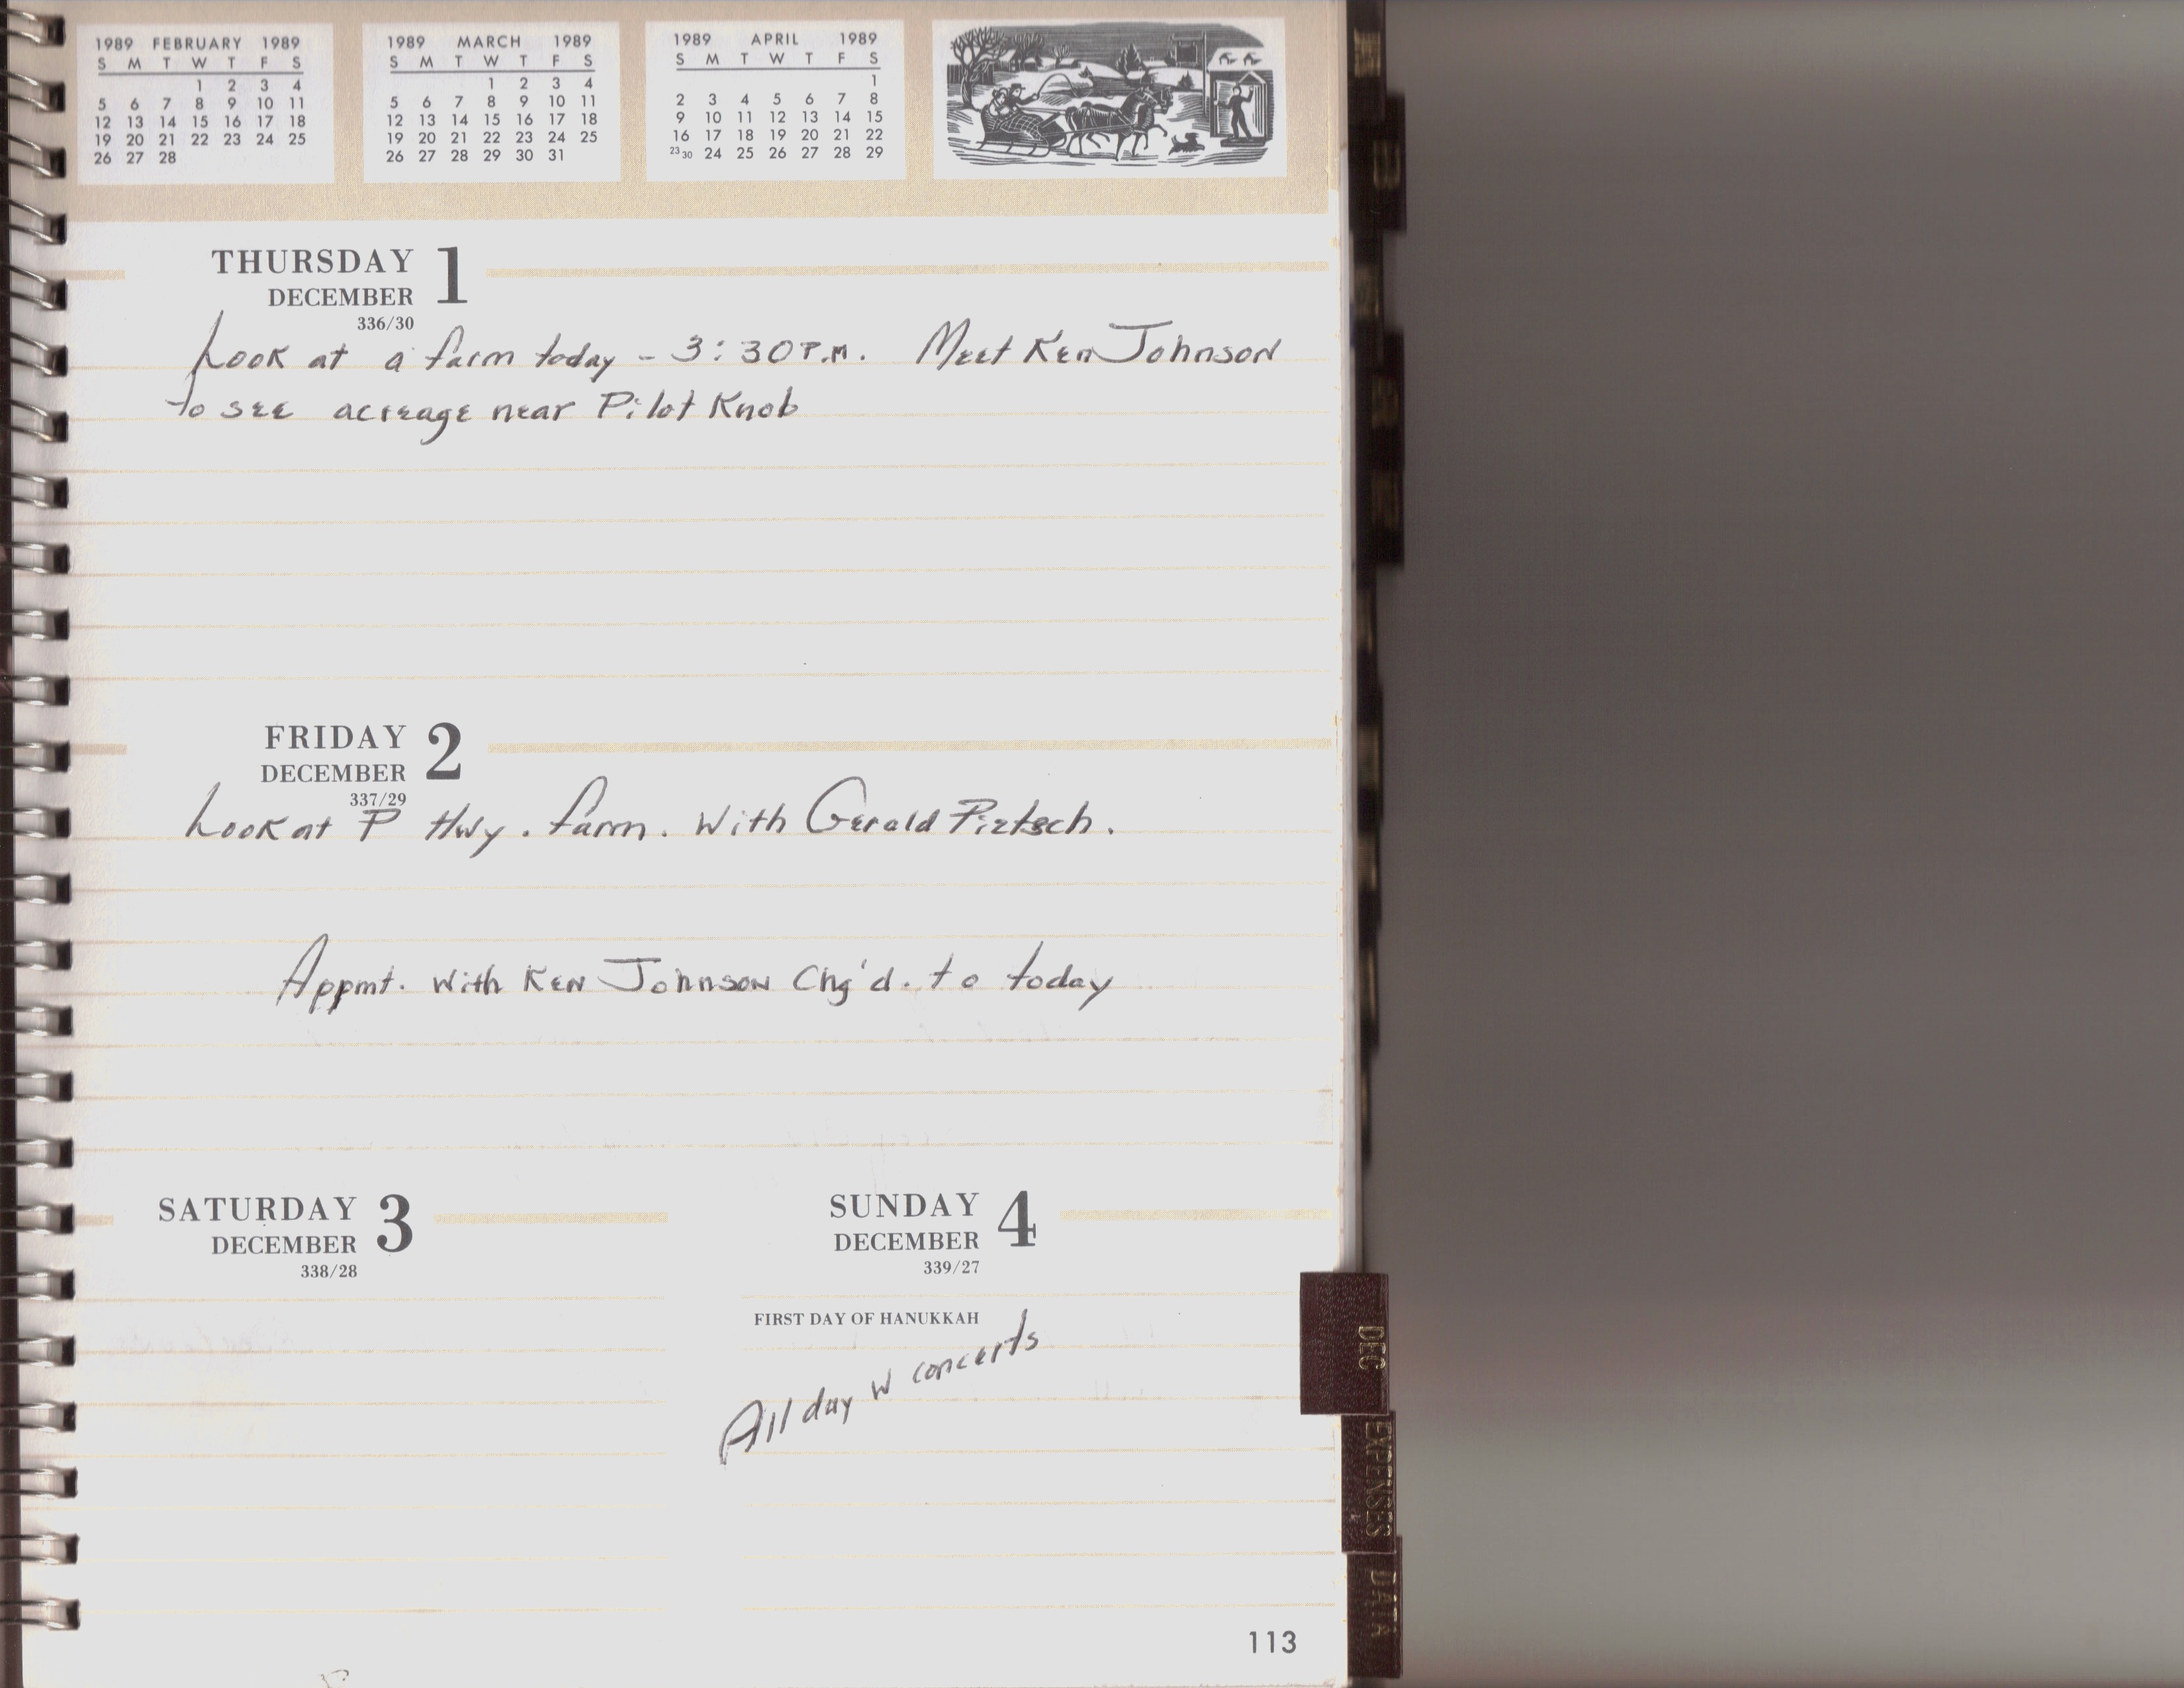 1989 FEBRUARY 1989
S M T W T F S
1 2 3 4
5 6 7 8 9 10 11
12 13 14 15 16 17 18
19 20 21 22 23 24 25
26 27 28
1989 MARCH 1989
S M T W T F S
1 2 3 4
5 6 7 8 9 10 11
12 13 14 15 16 17 18
19 20 21 22 23 24 25
26 27 28 29 30 31
1989 APRIL 1989
S M T W T F S
1
2 3 4 5 6 7 8
9 10 11 12 13 14 15
16 17 18 19 20 21 22
23 30 24 25 26 27 28 29
THURSDAY 1
DECEMBER
336/30
Look at a farm today - 3:30 P.M. Meet Ken Johnson
to see acreage near Pilot Knob
FRIDAY 2
DECEMBER
337/29
Look at P Hwy. farm. With Gerald Pietsch.
Appmt. With Ken Johnson Chg'd. to today
SATURDAY 3
DECEMBER
338/28
SUNDAY 4
DECEMBER
339/27
FIRST DAY OF HANUKKAH
All day W concerts
DEC
EXPENSES
DATA
113